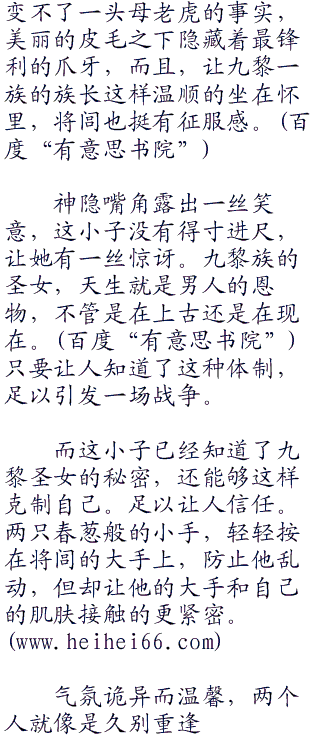 变不了一头母老虎的事实，
美丽的皮毛之下隐藏着最锋
利的爪牙，而且，让九黎一
族的族长这样温顺的坐在怀
里，将闾也挺有征服感。(百
度“有意思书院”)
神隐嘴角露出一丝笑
意，这小子没有得寸进尺，
让她有一丝惊讶。九黎族的
圣女，天生就是男人的恩
物，不管是在上古还是在现
在。(百度“有意思书院”)
只要让人知道了这种体制，
足以引发一场战争。
而这小子已经知道了九
黎圣女的秘密，还能够这样
克制自己。足以让人信任。
两只春葱般的小手，轻轻按
在将闾的大手上，防止他乱
动，但却让他的大手和自己
的肌肤接触的更紧密。
(www.heihei66.com)
气氛诡异而温馨，两个
人就像是久别重逢